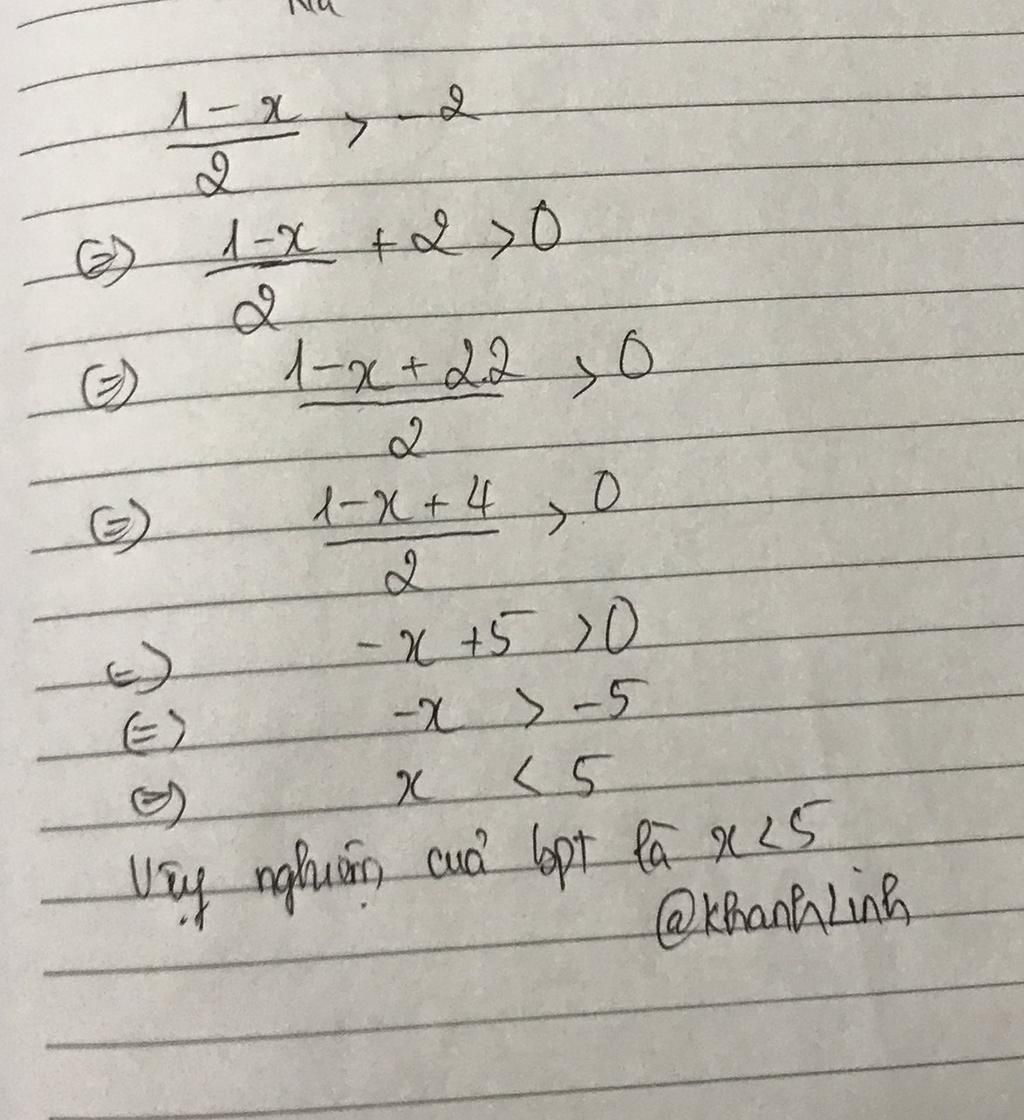 1 - x / 2 > - 2
(=) 1-x / 2 + 2 > 0
(=) 1-x + 2.2 / 2 > 0
(=) 1-x + 4 / 2 > 0
(=) -x +5 > 0
(=) -x > -5
(=) x < 5
Vậy nghiệm của bpt là x < 5
@KhanhLinh